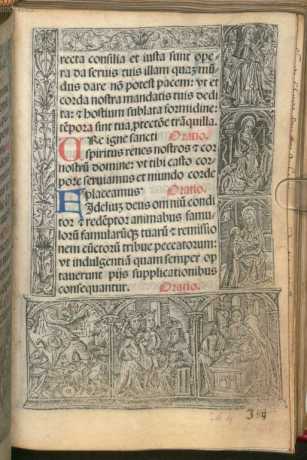 recta consilia et iusta sunt ope
ra da seruis tuis illam quaz mū
dus dare nō potest pacem: vt et
corda nostra mandatis tuis dedi
ta: ⁊ hostium sublata formidine:
tēpora sint tua ptectōe trāquilla.
URe igne sancti Oratio.
spiritus renes nostros ⁊ cor
nostrū domine: vt tibi casto cor
pore seruiamus et mundo corde
placeamus Oratio.
FIdeliuz deus om̄iū condi
tor ⁊ redēptor animabus famu
lorū famularūq; tuarū ⁊ remissio
nem cūctorū tribue peccatorum:
vt indulgentiā quam semper op
tauerunt pijs supplicationibus
consequantur. Oratio.